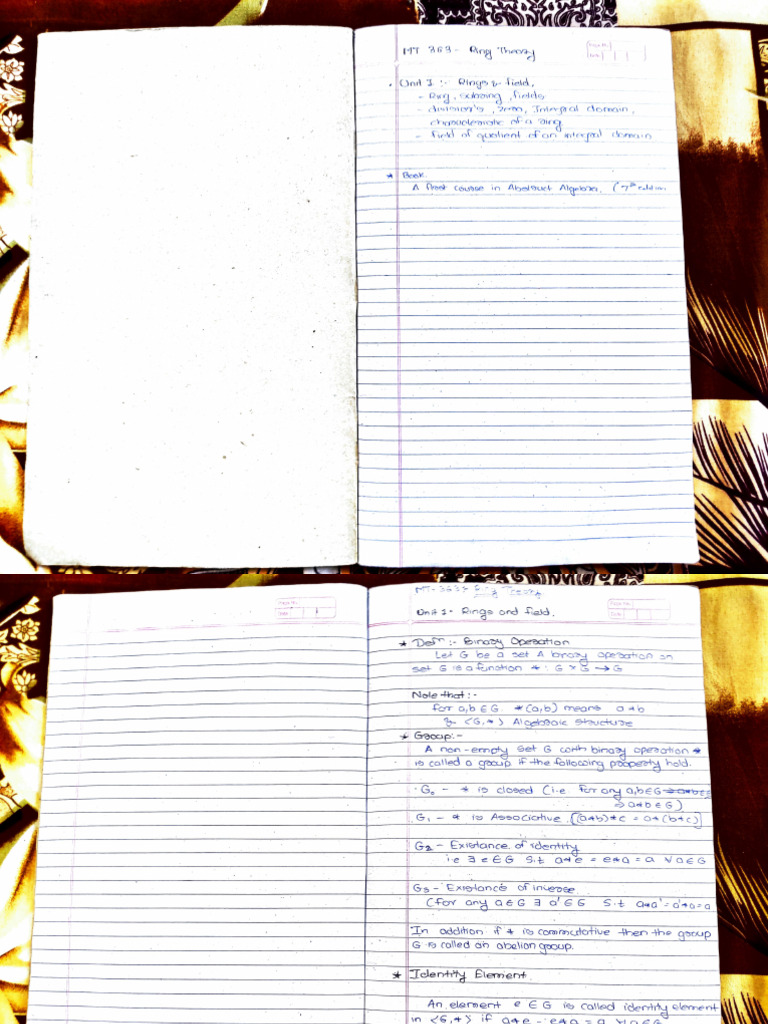 MT 363 - Ring Theory
Page No.
Date
Unit 1 :- Rings & field.
- Ring, subring, fields
- division's, zero, Integral domain,
characteristic of a ring
- field of quotient of an integral domain
* Book.
A first course in Abstract Algebra, (7th edition
MT-363: Ring Theory
Page No.
Date 1
Unit 1- Rings and field.
Page No.
Date
* Defn :- Binary Operation
Let G be a set A binary operation on
set G is a function * : G × G → G
Note that :-
for a,b ∈ G. *(a,b) means a*b
& <G,*> Algebraic structure
* Group:-
A non-empty set G with binary operation *
is called a group if the following property hold.
G₀ - * is closed (i.e for any a,b∈G
⇒ a*b ∈ G)
G₁ - * is Associative. [(a*b)*c = a*(b*c)]
G₂ - Existance of identity
i.e ∃ e ∈ G s.t a*e = e*a = a ∀ a ∈ G
G₃ - Existance of inverse
(for any a∈G ∃ a' ∈ G s.t a*a' = a'*a = a
In addition if * is commutative then the group
G is called an abelian group.
* Identity Element.
An element e ∈ G is called identity element
in <G,*> if a*e = e*a = a ∀ a ∈ G